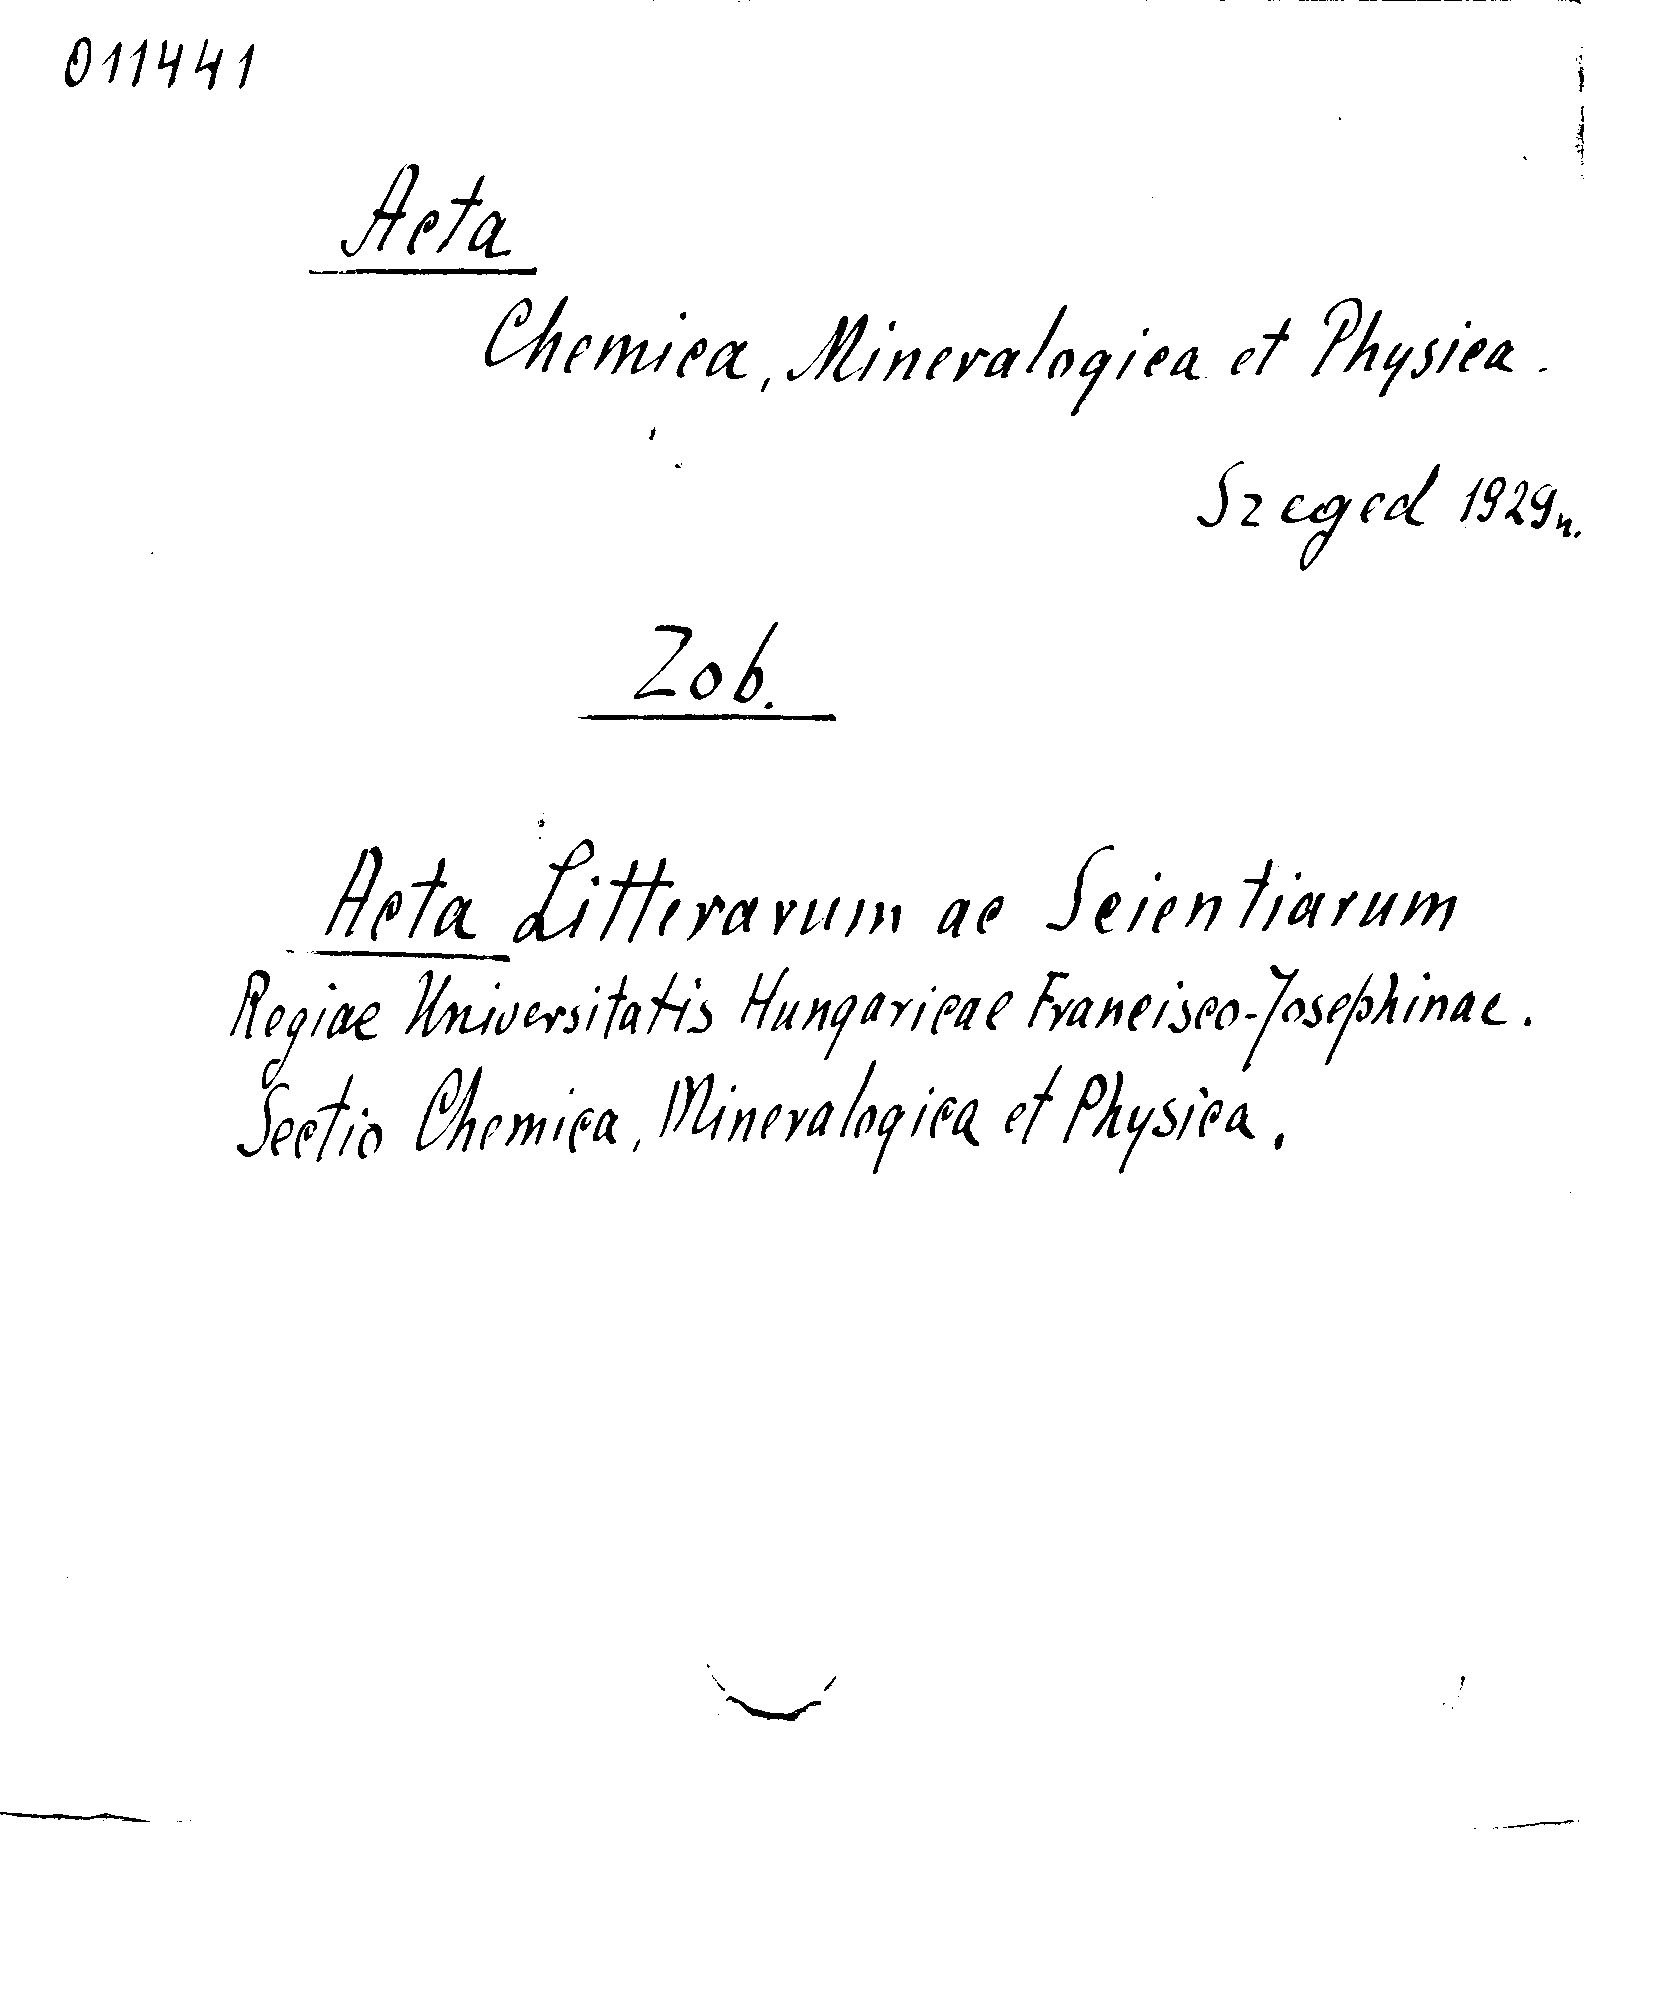 011441
Acta
Chemica, Mineralogica et Physica.
Szeged 1929n.
Zob.
Acta Litterarum ac Scientiarum
Regiae Universitatis Hungaricae Francisco-Josephinae.
Sectio Chemica, Mineralogica et Physica.